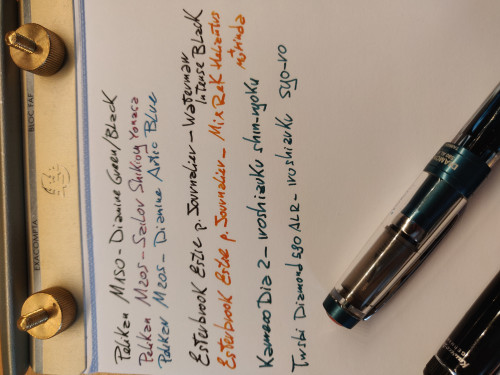 Pelikan M150 - Diamine Green/Black
Pelikan M205 - Sailor Shikiori Yonaga
Pelikan M205 - Diamine Aztec Blue
Esterbrook Estie p. Journalier - Waterman
Intense Black
Esterbrook Estie p. Journalier - Mix R&K Helianthus
+
Kaweco Dia 2 - iroshizuku shin-ryoku
Twsbi Diamond 580 ALR - iroshizuku syo-ro
EXACOMPTA
BLOC FAF